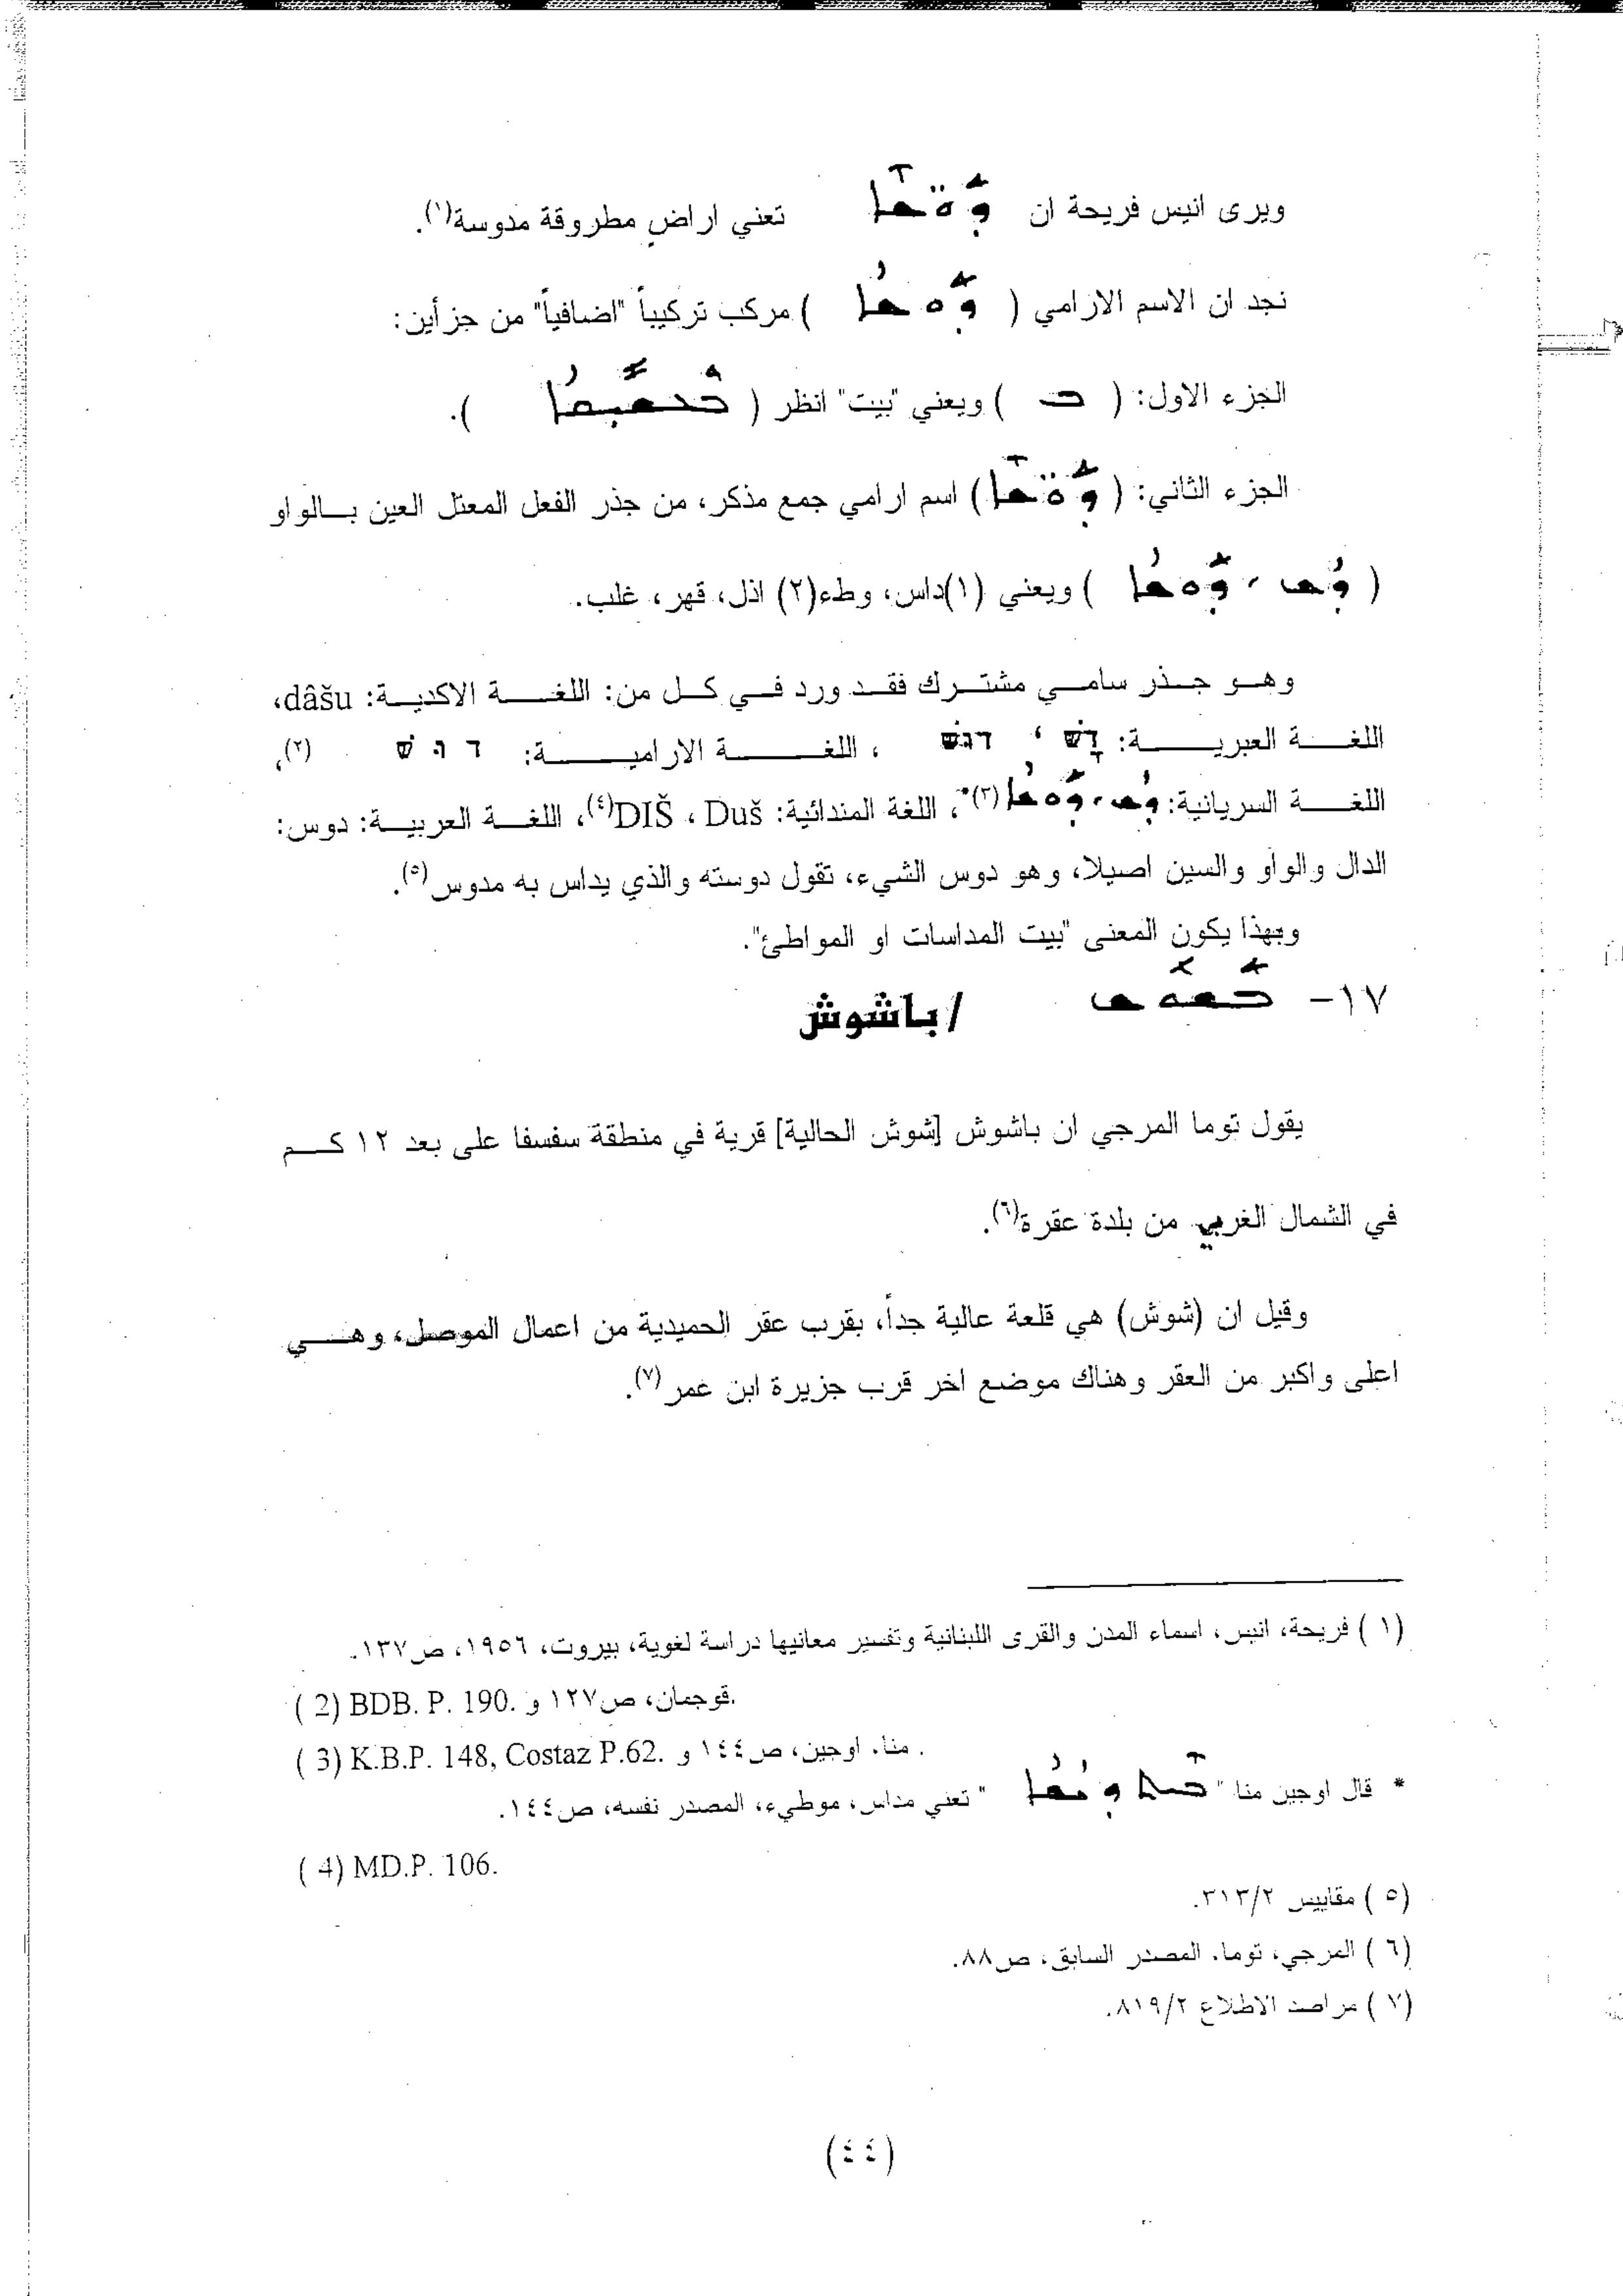 ويرى انيس فريحة ان ܕܘ̈ܫܐ تعني اراضٍ مطروقة مدوسة(١).
نجد ان الاسم الارامي ( ܕܘܫܐ ) مركب تركيباً "اضافياً" من جزأين:
الجزء الاول: ( ܒ ) ويعني "بيت" انظر ( ).
الجزء الثاني: ( ܕܘ̈ܫܐ ) اسم ارامي جمع مذكر، من جذر الفعل المعتل العين بالواو
( ܕܫ ، ܕܘܫܐ ) ويعني (١)داس، وطء(٢) اذل، قهر، غلب.
وهو جذر سامي مشترك فقد ورد في كل من: اللغة الاكدية: dâšu،
اللغة العبرية: דש ، דוש ، اللغة الارامية: דוש (٢)،
اللغة السريانية: ܕܫ، ܕܘܫܐ(٣)*، اللغة المندائية: DIŠ ، Duš(٤)، اللغة العربية: دوس:
الدال والواو والسين اصيلا، وهو دوس الشيء، تقول دوسته والذي يداس به مدوس(٥).
وبهذا يكون المعنى "بيت المداسات او المواطئ".
١٧- ܒܫܘܫ /باشوش
يقول توما المرجي ان باشوش [شوش الحالية] قرية في منطقة سفسفا على بعد ١٢ كم
في الشمال الغربي من بلدة عقرة(٦).
وقيل ان (شوش) هي قلعة عالية جداً، بقرب عقر الحميدية من اعمال الموصل، وهي
اعلى واكبر من العقر وهناك موضع اخر قرب جزيرة ابن عمر(٧).
(١ ) فريحة، انيس، اسماء المدن والقرى اللبنانية وتفسير معانيها دراسة لغوية، بيروت، ١٩٥٦، ص١٣٧.
( 2) BDB. P. 190. و قوجمان، ص١٢٧.
( 3) K.B.P. 148, Costaz P.62. و منا، اوجين، ص١٤٤ .
* قال اوجين منا " ܒܝܬ ܕܝܫܐ " تعني مداس، موطيء، المصدر نفسه، ص١٤٤.
( 4) MD.P. 106.
(٥ ) مقاييس ٣١٣/٢.
(٦ ) المرجي، توما، المصدر السابق، ص٨٨.
(٧ ) مراصد الاطلاع ٨١٩/٢.
(٤٤)